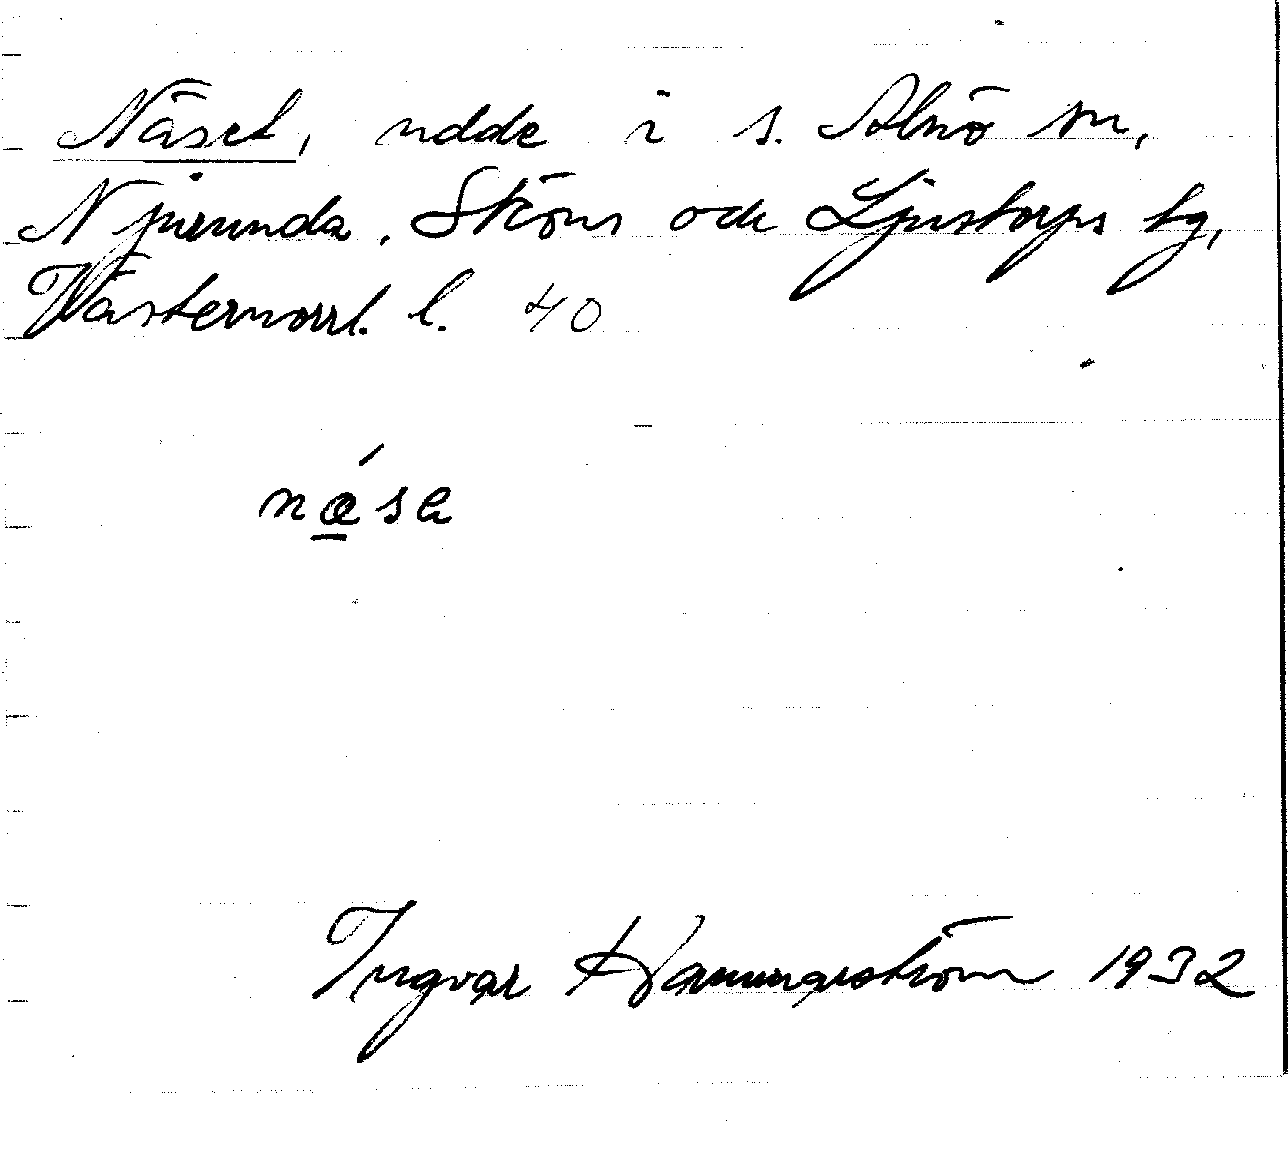 Näset, udde i s. Alnö sn,
Njurunda, Sköns och Ljustorps tg,
Västernorrl. l. 40
nǽ̱sa
Ingvar Hammarström 1932